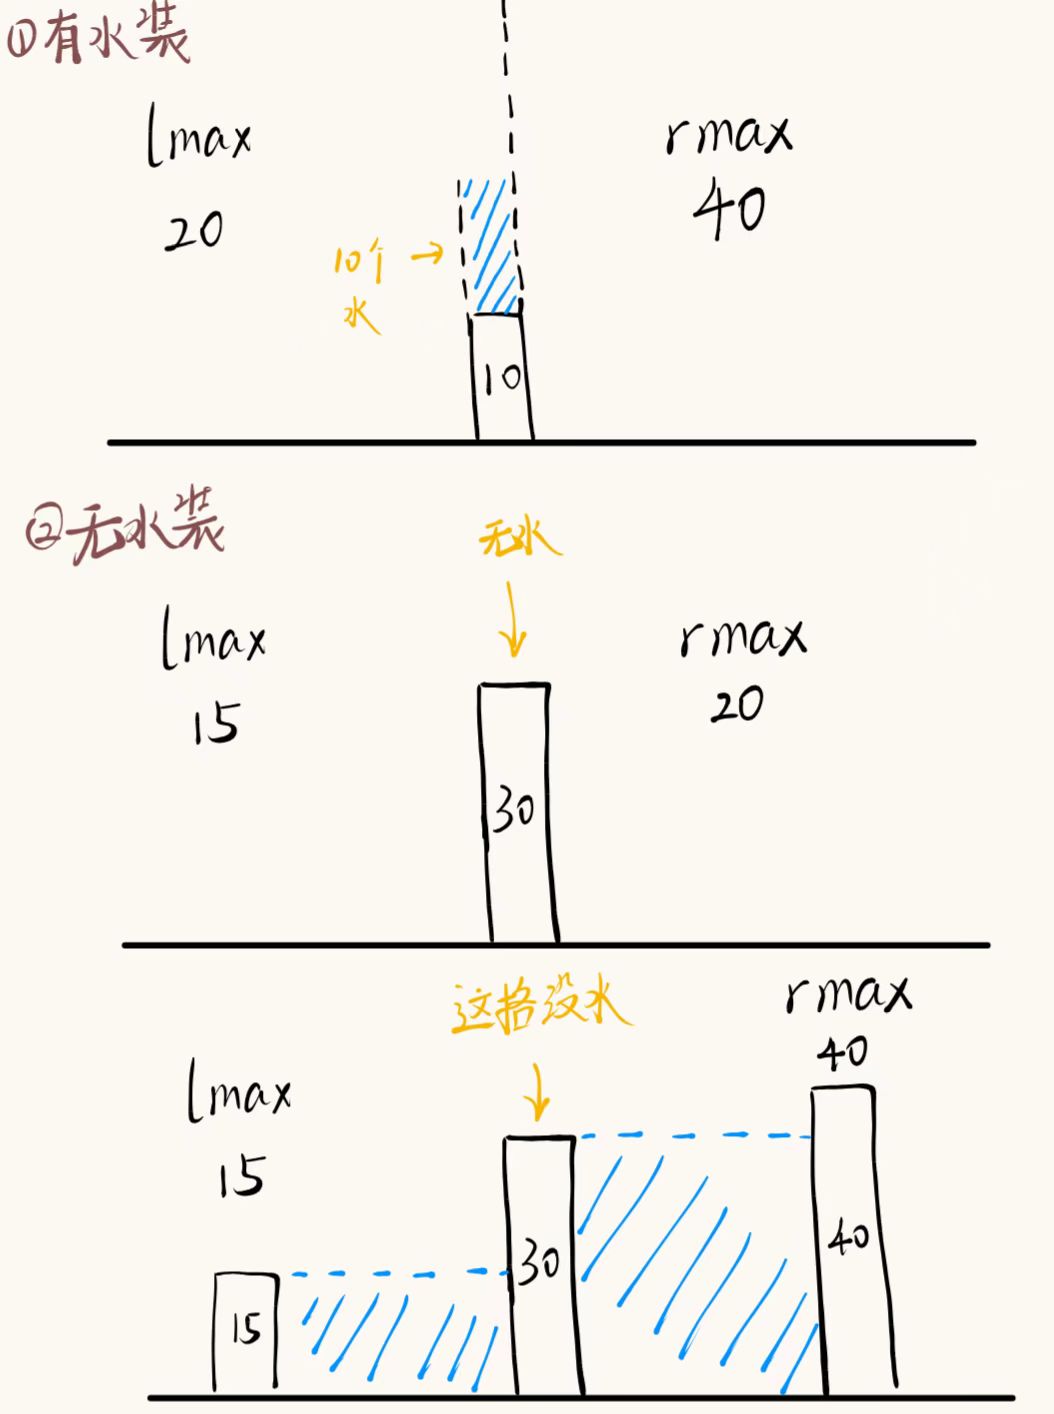 ①有水装
lmax rmax
20 40
10个 →
水
10
②无水装
无水
lmax rmax
15 20
30
这格没水
rmax
40
lmax
15
15 30 40